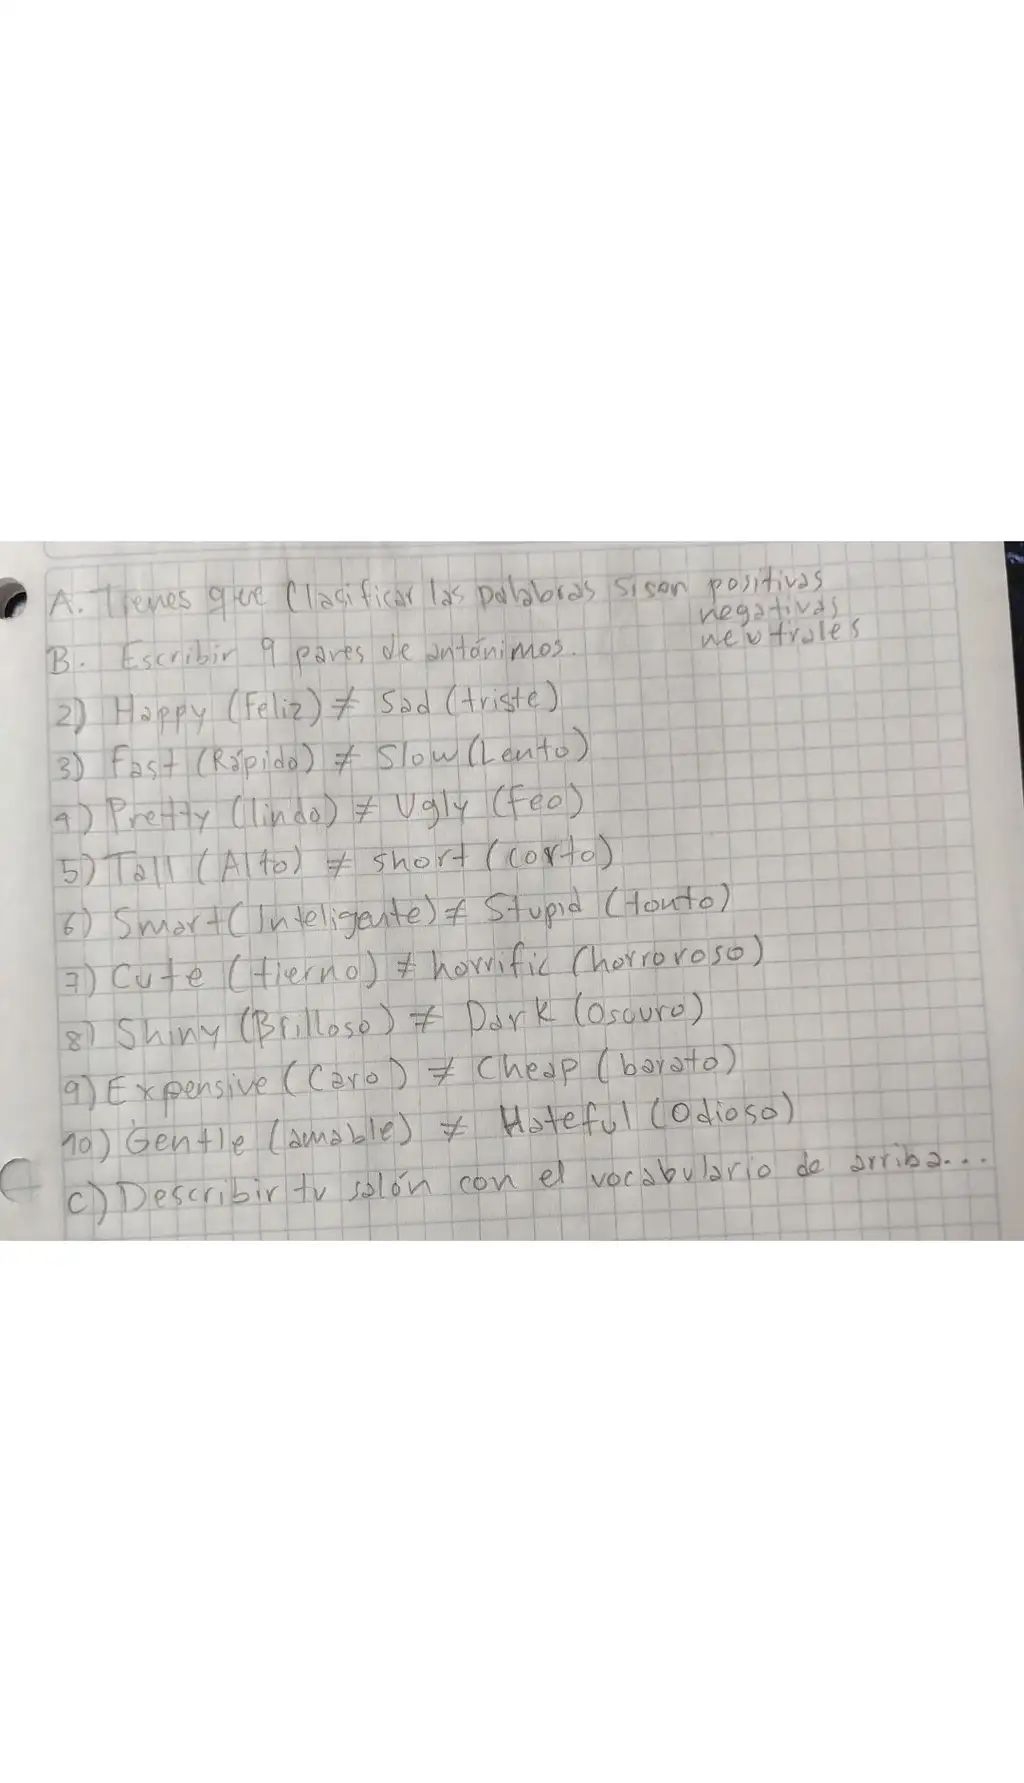 A. Tienes que Clasificar las palabras si son positivas
negativas
neutrales
B. Escribir 9 pares de antónimos.
2) Happy (Feliz) ≠ Sad (triste)
3) Fast (Rápido) ≠ Slow (Lento)
4) Pretty (lindo) ≠ Ugly (Feo)
5) Tall (Alto) ≠ short (corto)
6) Smart (Inteligente) ≠ Stupid (tonto)
7) Cute (tierno) ≠ horrific (horroroso)
8) Shiny (Brilloso) ≠ Dark (Oscuro)
9) Expensive (Caro) ≠ Cheap (barato)
10) Gentle (amable) ≠ Hateful (Odioso)
C) Describir tu salón con el vocabulario de arriba...